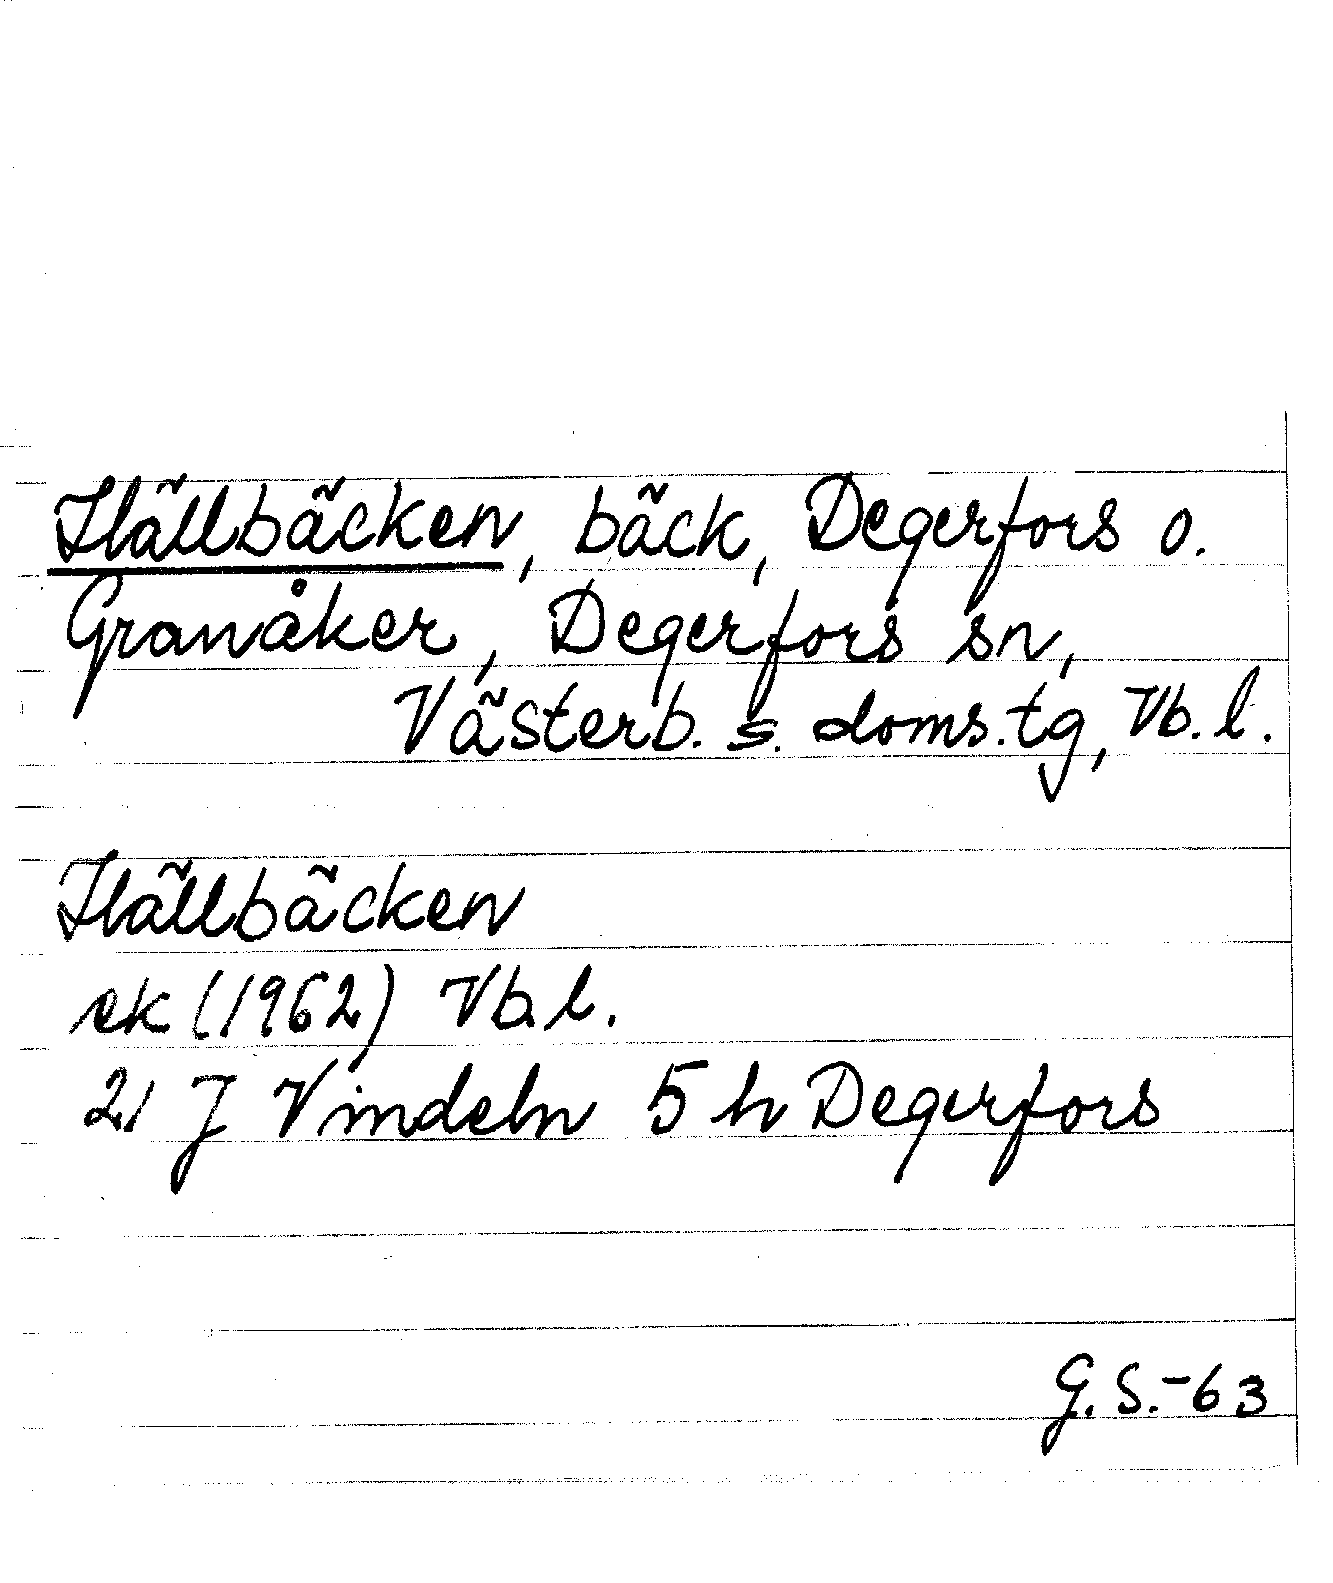 Hällbäcken, bäck, Degerfors o.
Granåker, Degerfors sn,
Västerb. s. doms.tg, Vb. l.
Hällbäcken
ek (1962) Vb. l.
21 J Vindeln 5 h Degerfors
G.S.-63